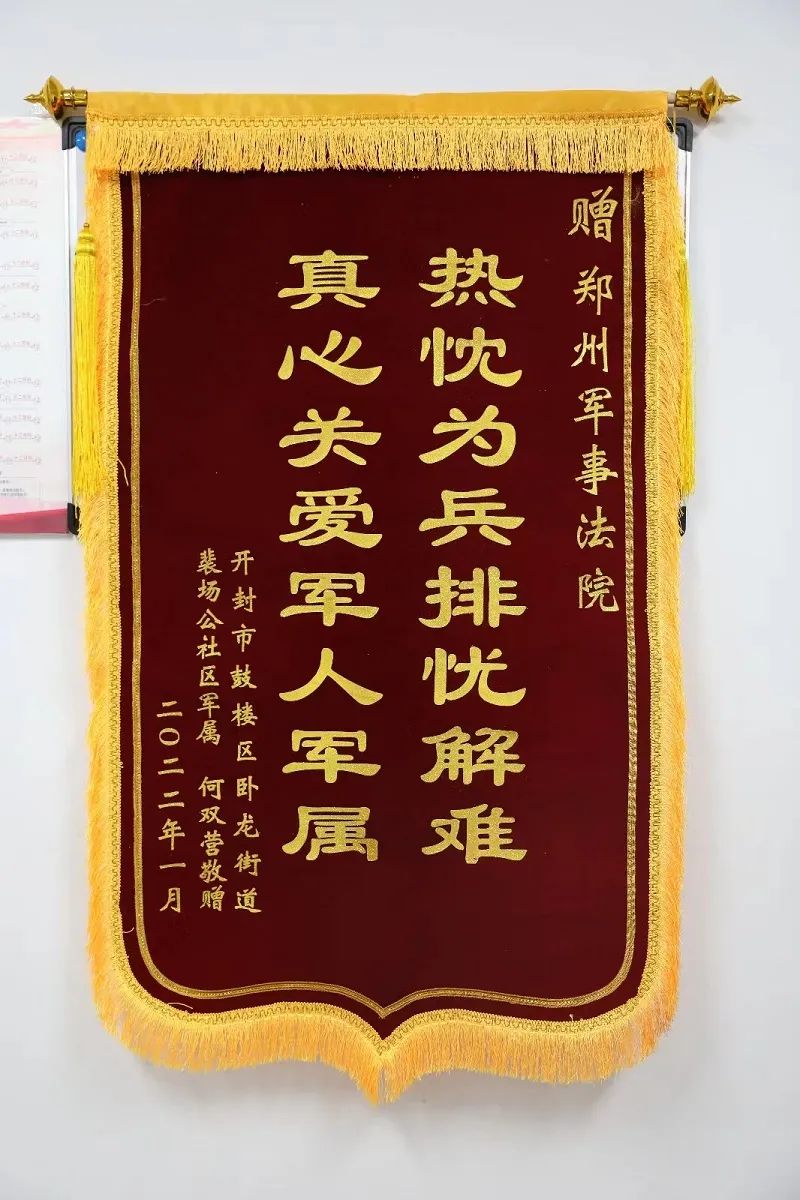 赠 郑州军事法院
热忱为兵排忧解难
真心关爱军人军属
开封市鼓楼区卧龙街道
裴场公社区军属 何双营敬赠
二〇二二年一月